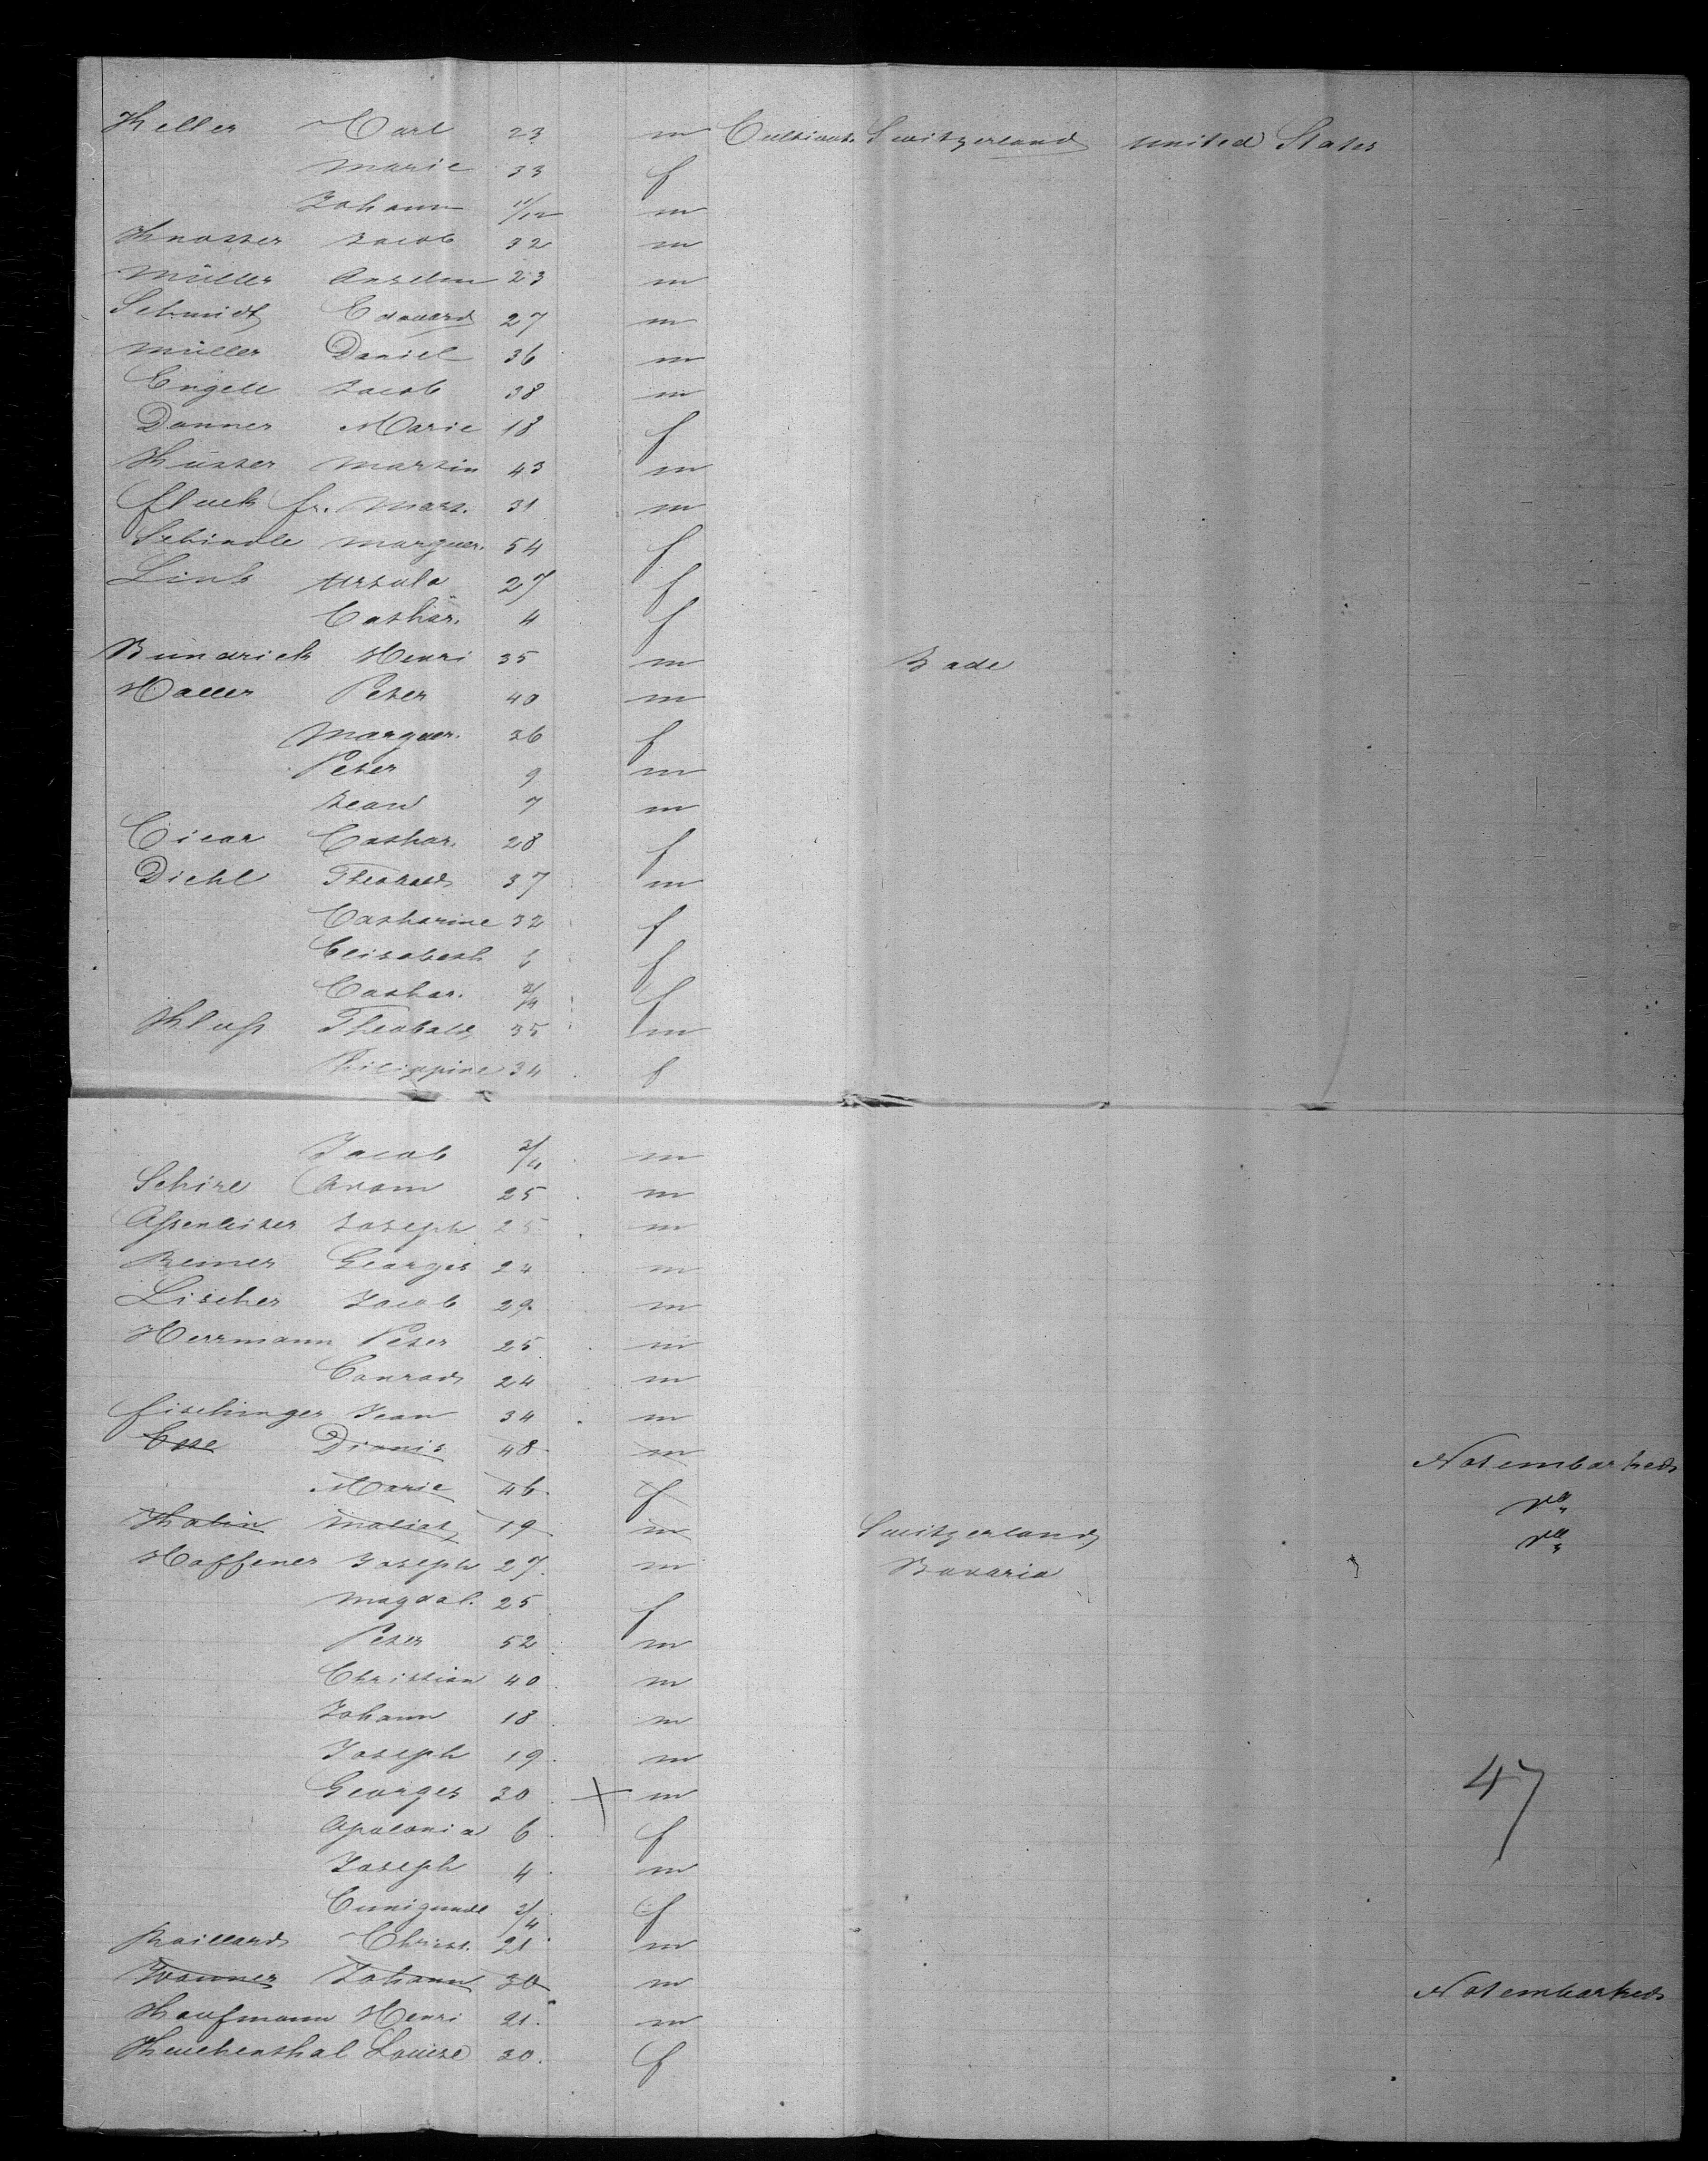 Keller Carl 23 m Cultivat. Switzerland united States
Marie 33 f
Johann 11/12 m
Knosser Jacob 32 m
Müller Anselm 23 m
Schmidt Edouard 27 m
Müller Daniel 36 m
Engell Jacob 38 m
Danner Marie 18 f
Husser Martin 43 m
fluck fr. Mart. 31 m
Schindle Marguer. 54 f
Link Ursula 27 f
Cathar. 4 f
Bündrick Henri 35 m Bade
Haller Peter 40 m
Marguer. 36 f
Peter 9 m
Jean 7 m
Cicar Cathar. 28 f
Diehl Theobald 37 m
Catharine 32 f
Elisabeth 6 f
Cathar. 3/4 f
Kluß Theobald 35 m
Philippine 34 f
Jacob 3/4 m
Schire Adam 25 m
Aßenleiter Joseph 25 m
Bemer Georges 24 m
Lischer Jacob 29 m
Herrmann Peter 25 m
Conrad 24 m
fischinger Jean 34 m
Esse Dionis 48 m Not embarked
Marie 46 f do
Kalin 19 m Switzerland do
Haffener Joseph 27 m Bavaria
Magdal. 25 f
Peter 52 m
Christian 40 m
Johann 18 m
Joseph 19 m
Georges 30 + m 47
Apolonia 6 f
Joseph 4 m
Cunigunde 3/4 f
Raillard Christ. 21 m
Wanner Johann 30 m Not embarked
Kaufmann Henri 21 m
Kuchenthal Louise 30 f